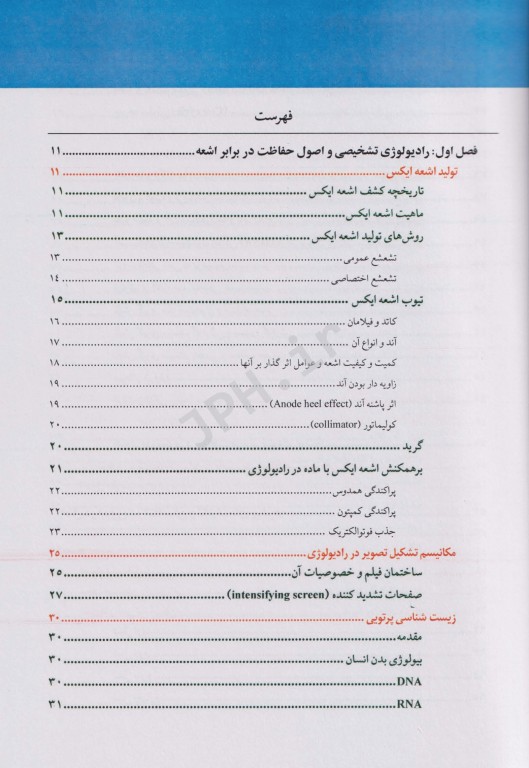 فهرست
فصل اول: رادیولوژی تشخیصی و اصول حفاظت در برابر اشعه ................................ ۱۱
تولید اشعه ایکس ................................ ۱۱
تاریخچه کشف اشعه ایکس ................................ ۱۱
ماهیت اشعه ایکس ................................ ۱۱
روش‌های تولید اشعه ایکس ................................ ۱۳
تشعشع عمومی ................................ ۱۳
تشعشع اختصاصی ................................ ۱۴
تیوب اشعه ایکس ................................ ۱۵
کاتد و فیلامان ................................ ۱۶
آند و انواع آن ................................ ۱۷
کمیت و کیفیت اشعه و عوامل اثر گذار بر آنها ................................ ۱۸
زاویه دار بودن آند ................................ ۱۹
اثر پاشنه آند (Anode heel effect) ................................ ۱۹
کولیماتور (collimator) ................................ ۲۰
گرید ................................ ۲۰
برهمکنش اشعه ایکس با ماده در رادیولوژی ................................ ۲۱
پراکندگی همدوس ................................ ۲۲
پراکندگی کمپتون ................................ ۲۲
جذب فوتوالکتریک ................................ ۲۳
مکانیسم تشکیل تصویر در رادیولوژی ................................ ۲۵
ساختمان فیلم و خصوصیات آن ................................ ۲۵
صفحات تشدید کننده (intensifying screen) ................................ ۲۷
زیست شناسی پرتویی ................................ ۳۰
مقدمه ................................ ۳۰
بیولوژی بدن انسان ................................ ۳۰
DNA ................................ ۳۰
RNA ................................ ۳۱
JPH.ir